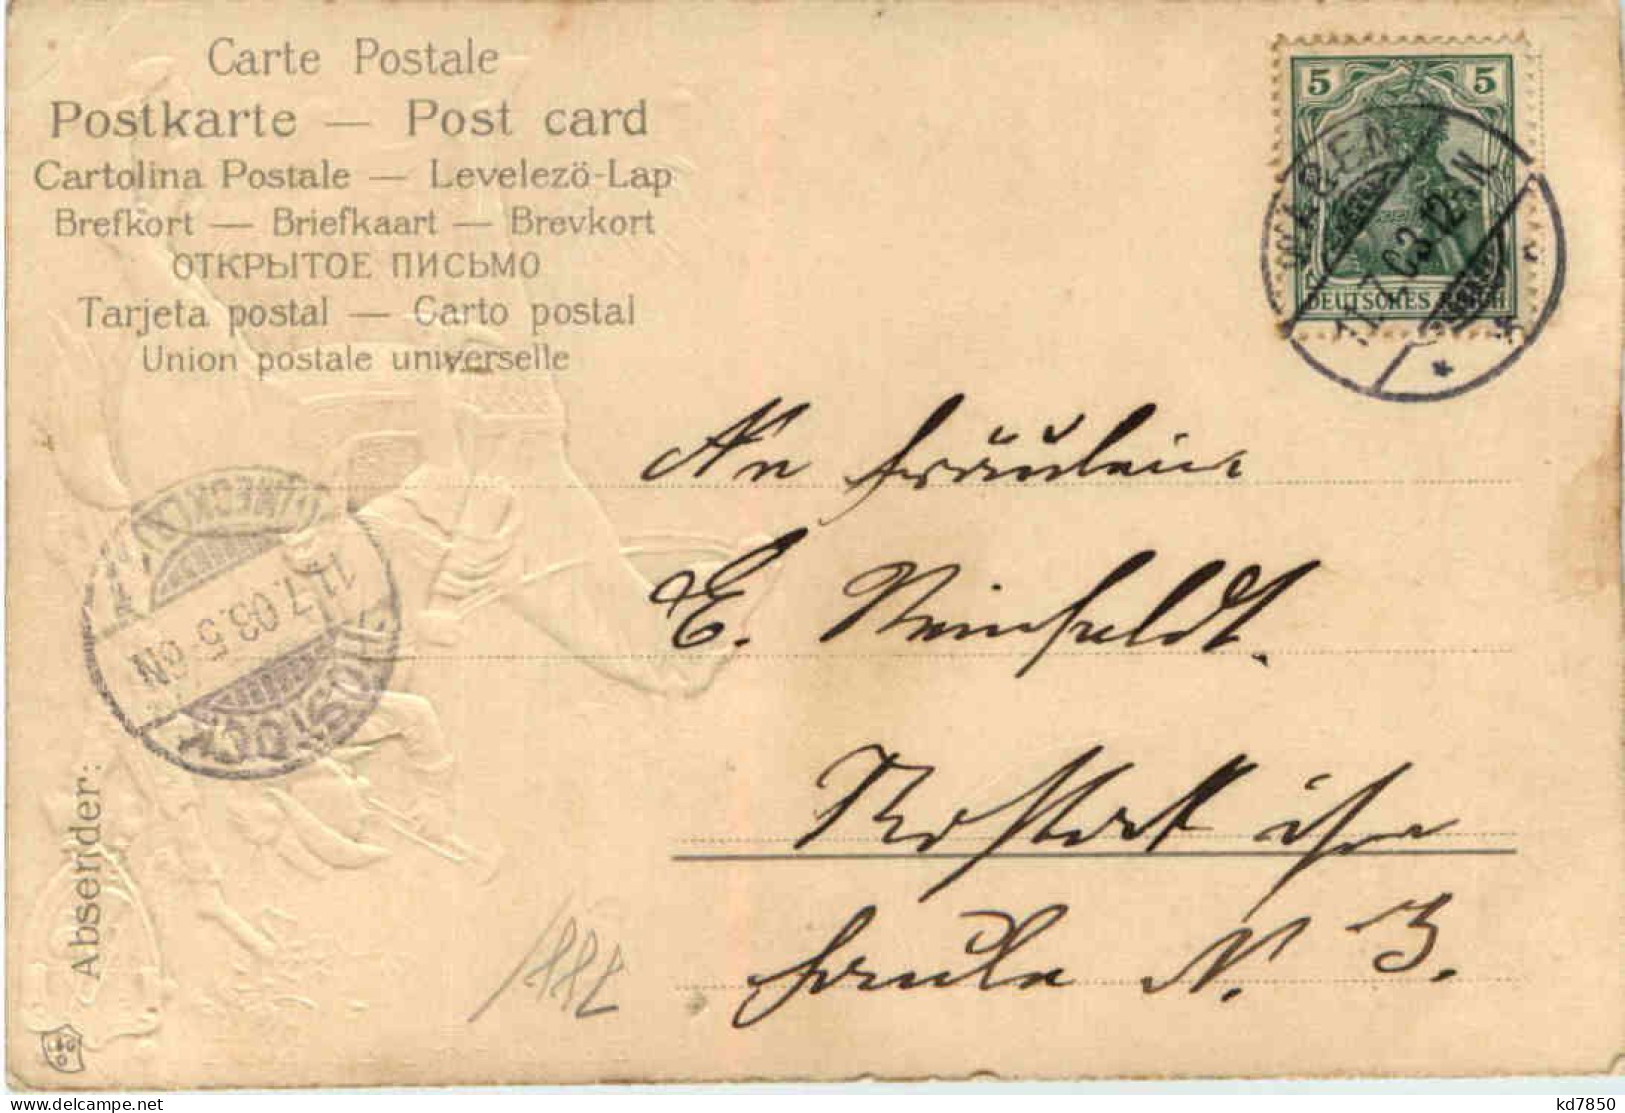 Carte Postale
Postkarte — Post card
Cartolina Postale — Levelező-Lap
Brefkort — Briefkaart — Brevkort
ОТКРЫТОЕ ПИСЬМО
Tarjeta postal — Carto postal
Union postale universelle
5 5
DEUTSCHES REICH
WAREN
11.7.03.12-1N.
ROSTOCK
(MECKL)
11.7.03.5-6N
An Fräulein
E. Reinfeldt.
Rostock
N. 3.
Absender:
kd7850